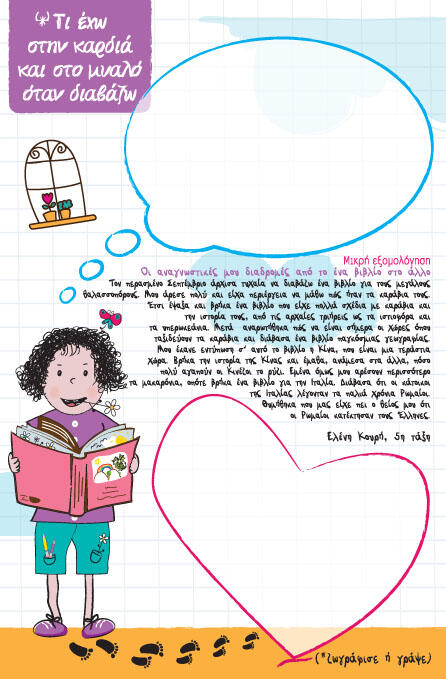 *Τι έχω
στην καρδιά
και στο μυαλό
όταν διαβάζω
Μικρή εξομολόγηση
Οι αναγνωστικές μου διαδρομές από το ένα βιβλίο στο άλλο
Τον περασμένο Σεπτέμβριο άρχισα τυχαία να διαβάζω ένα βιβλίο για τους μεγάλους
θαλασσοπόρους. Μου άρεσε πολύ και είχα περιέργεια να μάθω πώς ήταν τα καράβια τους.
Έτσι έψαξα και βρήκα ένα βιβλίο που είχε πολλά σχέδια με καράβια και
την ιστορία τους, από τις αρχαίες τριήρεις ως τα ιστιοφόρα και
τα υπερωκεάνια. Μετά αναρωτήθηκα πώς να είναι σήμερα οι χώρες όπου
ταξίδευαν τα καράβια και διάβασα ένα βιβλίο παγκόσμιας γεωγραφίας.
Μου έκανε εντύπωση σ' αυτό το βιβλίο η Κίνα, που είναι μια τεράστια
χώρα. Βρήκα την ιστορία της Κίνας και έμαθα, ανάμεσα στα άλλα, πόσο
πολύ αγαπούν οι Κινέζοι το ρύζι. Εμένα όμως μου αρέσουν περισσότερο
τα μακαρόνια, οπότε βρήκα ένα βιβλίο για την Ιταλία. Διάβασα ότι οι κάτοικοι
της Ιταλίας λέγονταν τα παλιά χρόνια Ρωμαίοι.
Θυμήθηκα που μας είχε πει ο θείος μου ότι
οι Ρωμαίοι κατέκτησαν τους Έλληνες.
Ελένη Κουρή, 5η τάξη
(*ζωγράφισε ή γράψε)